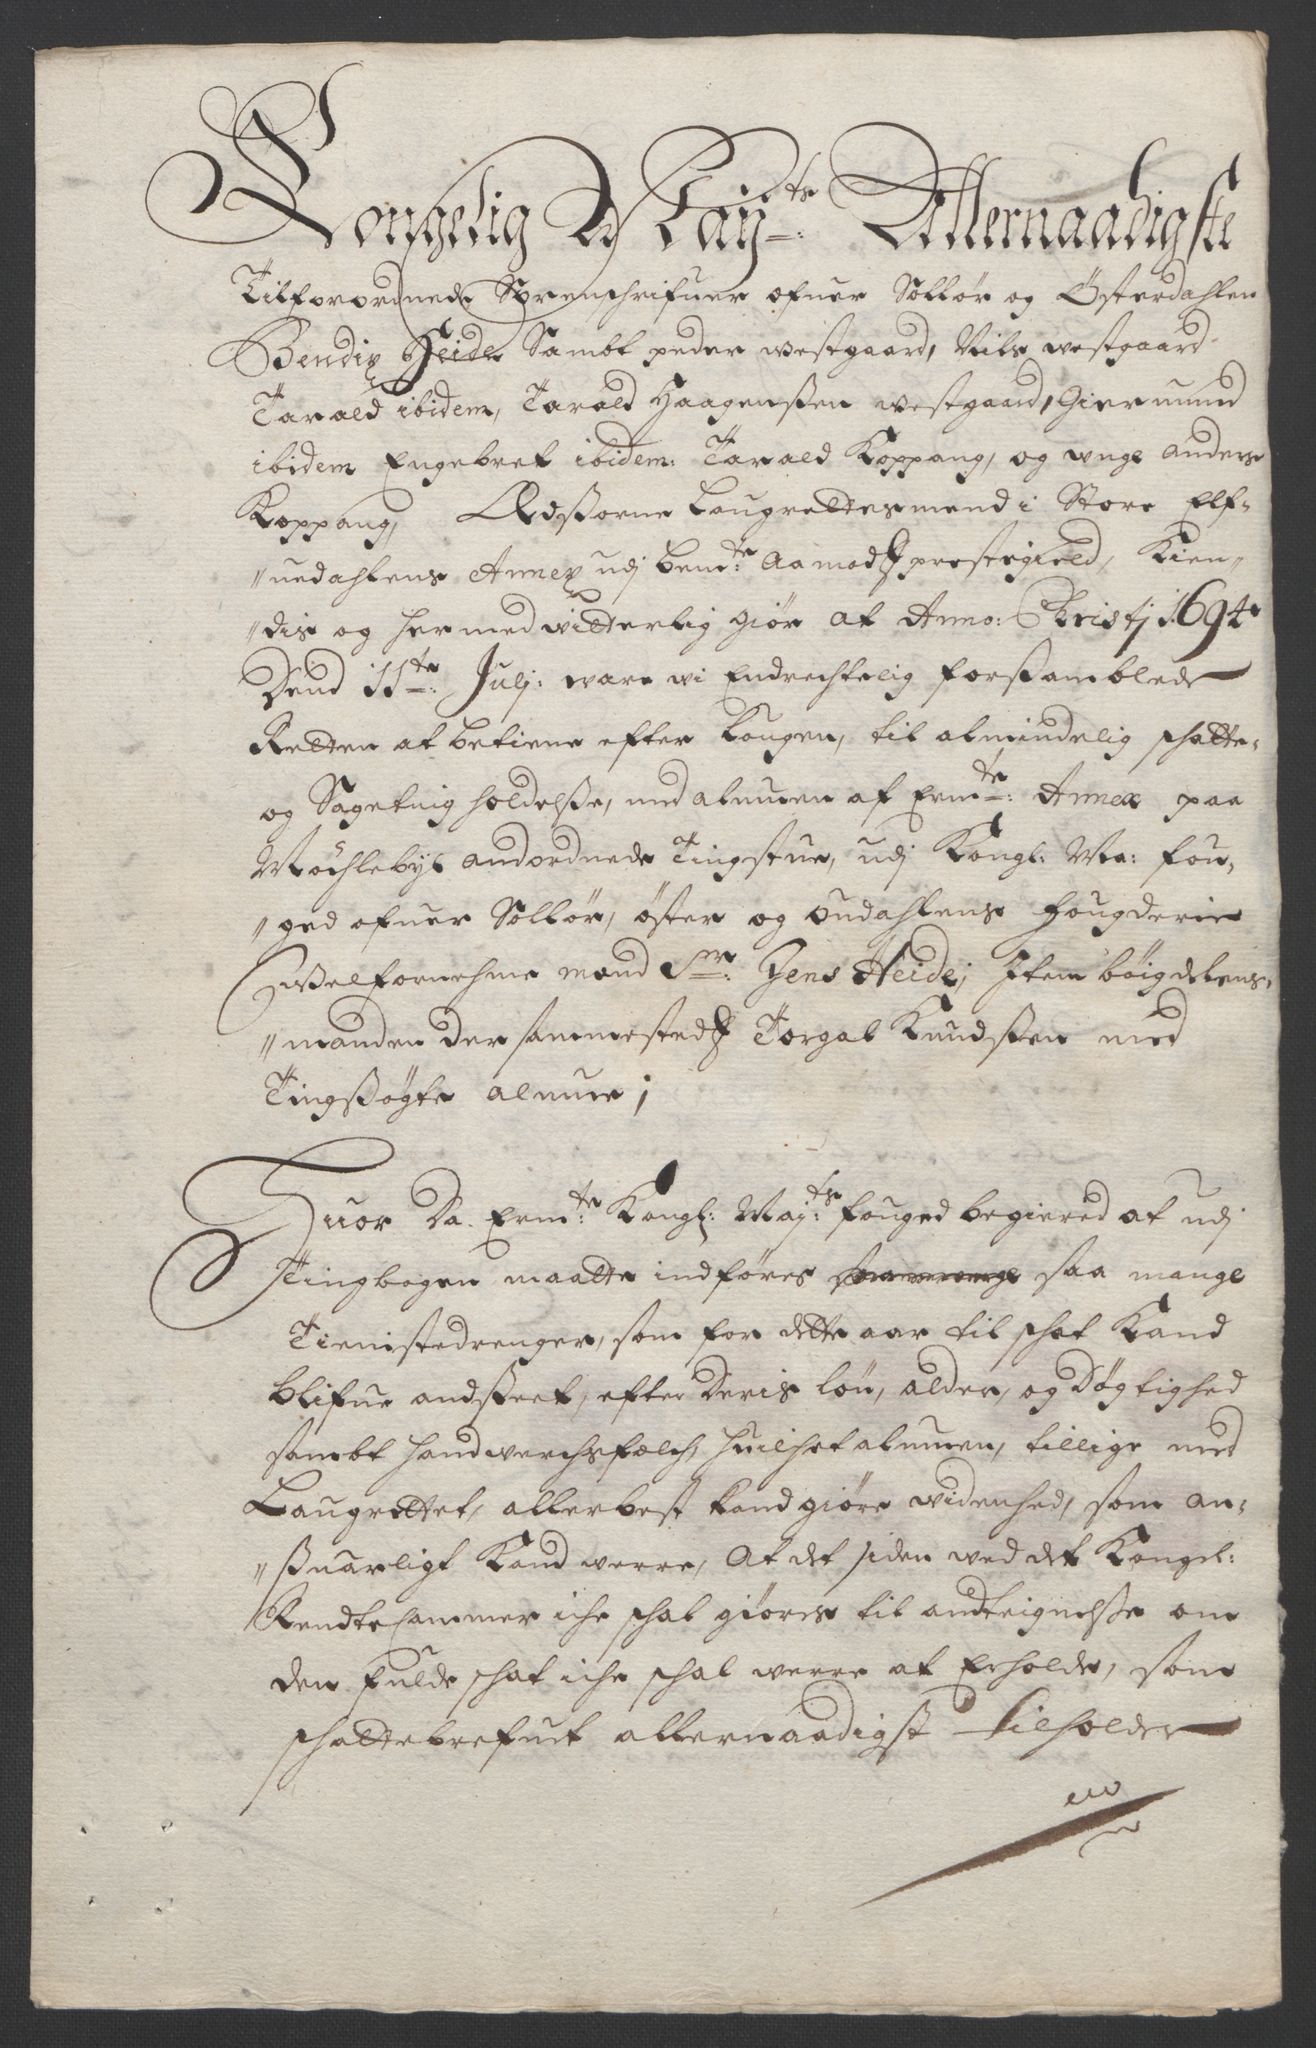 Kongelig Maÿ:ts Allernaadigste
Tilforordnede Sorenschrifuer ofuer Solløer og Østerdahlen
Bendix Heide Sambt peder westgaard, Nils westgaard
Tarald ibidem, Tarald Haagenssen westgaard, Giermund
ibidem Engebret ibidem: Tarald Koppang, og unge anders
Koppang, Edssorne Laugrettesmend i Store Elf-
"uedahlens Annex udj bem:te Aamodtz prestegield, Kien"
"dis og hermed witterlig giør at Anno: Christj 1694
Dend 11te: Julj: ware wi Endrechtelig forssamblede
Retten at betiene efter Lougen, til almindelig schatte-
og Sageting holdelsse, med almuen af Erm:te Annex paa
Møchlebye andordnede Tingstue, udj Kongl: Ma: fou-
"ged ofuer Solløer, øster og oudahlens fougderie
Welfornehme mand Sr: Jens Heide, Item böigdelens-
"manden der sammestedtz Torgal Knudssen med
Tingssøgte almue;
Huor Da Erm:te Kongl: Maj:ts fouged begiered at udj
Tingbogen maatte indføres saa mange
Tienistedrenger, som for dette aar til schat Kand
blifue andsseet, efter Deris løn, alder, og Døgtighed
sambt handwerchsfolch, huilchet almuen, tillige med
Laugrettet, allerbest kand giøre widenhed, som an-
"ssuarligt Kand werre, At det siden wed det Kongel:
RendteCammer iche schal giøres til andteignelsse om
den fulde schat iche schal werre at Erholde, som
schattebrefuet allernaadigst tilholder